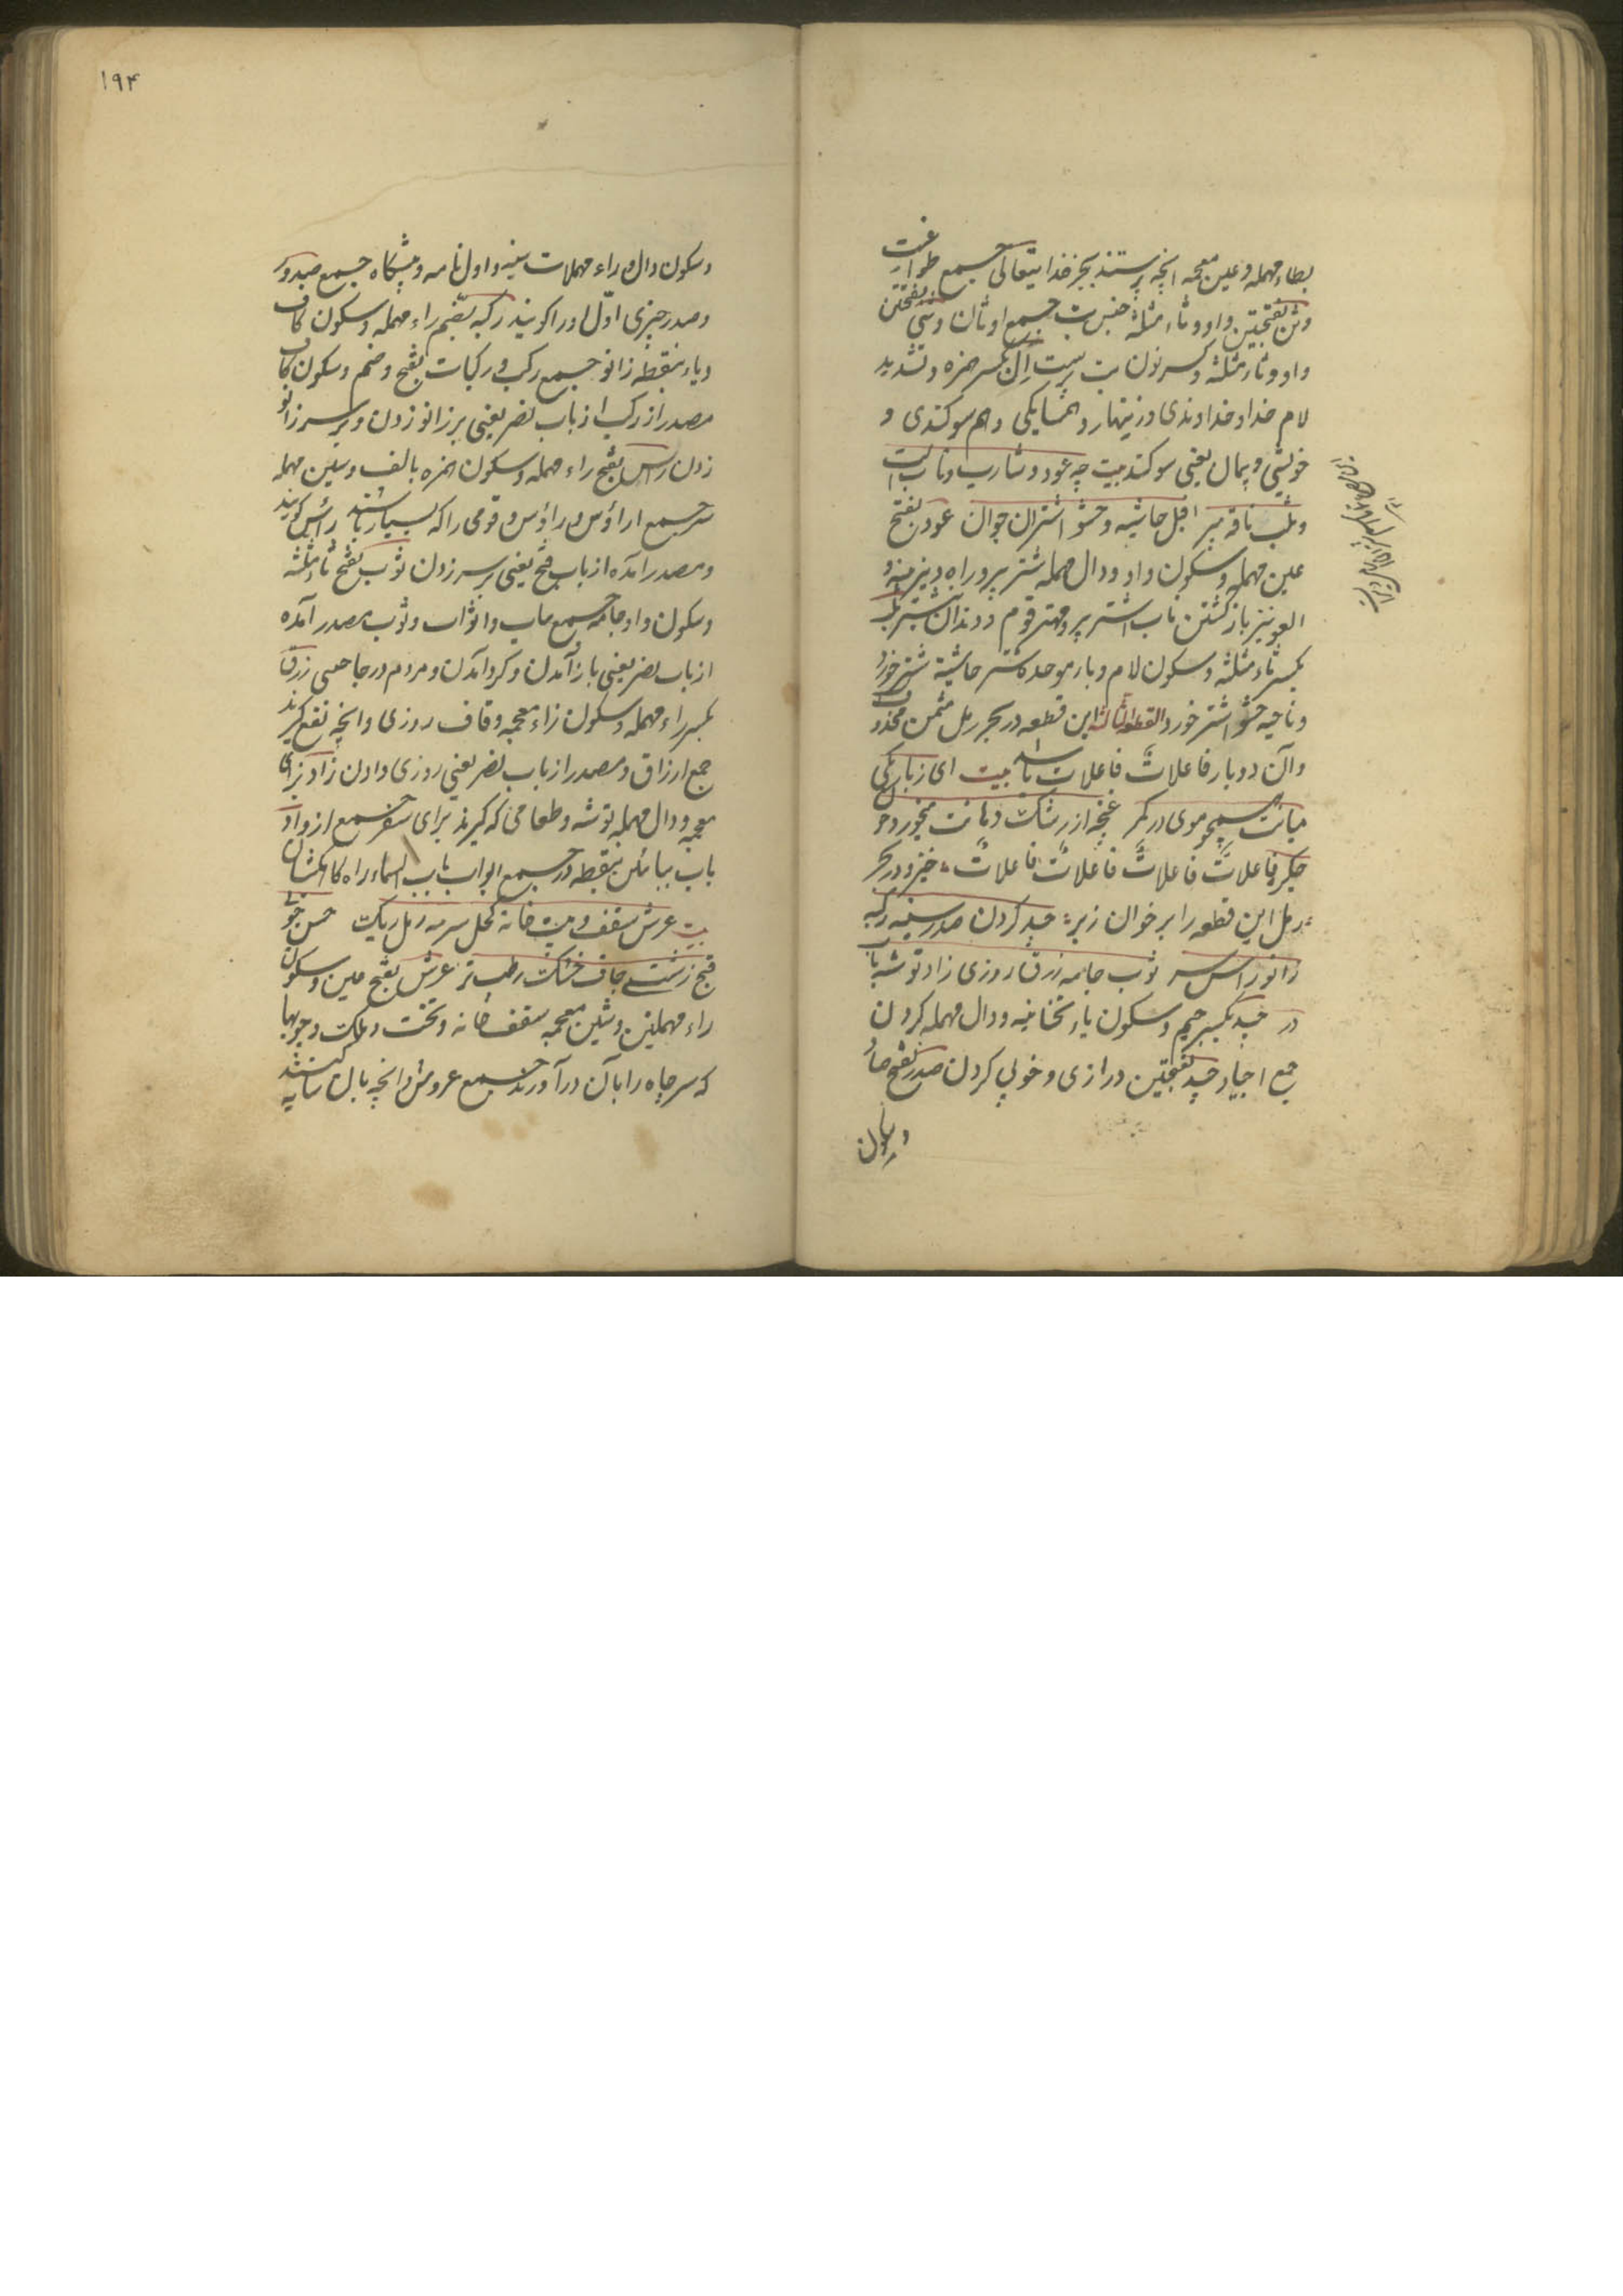 بطاء مهمله و غین معجمه انچه پرستند بجز خدایتعالی جمع طواغیت
وثن بفتحتین واو و ثاء مثلثه جنس بت جمع اوثان وثنی بفتحتین
واو و ثاء مثلثه و کسر نون بت پرست اِل بکسر همزه و تشدید
لام خدا و خداوندی و زینهار و همسایکی و هم سوکندی و
خویشی و پیمان یعنی سوکند بیت چه عود و شارب و ناب است
و ثلب ناقه پیر افیل حاشیه و حشو اشتران جوان عود بفتح
عین مهمله و سکون واو و دال مهمله شتر پیر و راه دیرینه و
العود نیز بازکشتن ناب اشتر پیر و مهتر قوم و دندان نیشتر ثلب
بکسر ثاء مثلثه و سکون لام و باء موحده شتر حاشیة شتر خورد
و ناحیه حشو اشتر خورد القطعة الثالثة این قطعه در بحر رمل مثمن محذوف
وآن دو بار فاعلاتن فاعلات باشد بیت ای ز باریکی
میانت همچو موی در کمر غنچه از رشک دهانت میخورد خون
جکر فاعلاتن فاعلاتن فاعلاتن فاعلات خیز و در بحر
رمل این قطعه را بر خوان ز بر جید کردن صدر سینه رکبه
زانو راس سر ثوب جامه رزق روزی زاد توشه باب
در جید بکسر جیم و سکون یاء تحتانیه و دال مهمله کردن
جمع اجیاد جید بفتحتین درازی و خوبی کردن صدر بفتح صاد
و سکون
۱۹۴
و سکون دال و راء مهملات سینه و اول نامه و پیشکاه جمع صدور
و صدر چیزی اوّل او را کویند رکبه بضم راء مهمله و سکون کاف
و باء بنقطه زانو جمع رکب و رکبات بفتح و ضم و سکون کاف
مصدر از رکب از باب نصر یعنی بر زانو زدن و بر سر زانو
زدن راس بفتح راء مهمله و سکون همزه بالف و سین مهمله
سر جمع ارؤس و رؤس و قومی را که بسیار باشند رأس کویند
و مصدر آمده از باب فتح یعنی بر سر زدن ثوب بفتح ثاء مثلثه
و سکون واو جامه جمع ثیاب و اثواب و ثوب مصدر آمده
از باب نصر یعنی باز آمدن و کرد آمدن و مردم در جاحسی رزق
بکسر راء مهمله و سکون زاء معجمه و قاف روزی و انچه نفع کیرند
جمع ارزاق و مصدر از باب نصر یعنی روزی دادن زاد بزای
معجمه و دال مهمله توشه و طعامی که کیرند برای سفر جمع ازواد
باب ببائین بنقطه در جمع ابواب باب السماء راه کاهکشان
بیت عرش سقف و بیت خانه کحل سرمه رمل ریک حسن خوبی
قبح زشتی جاف خشک رطب تر عرش بفتح عین و سکون
راء مهملتین و شین معجمه سقف خانه و تخت و ملک و چوبها
که سر چاه را بآن درآورند جمع عروش و انچه بآن سایه کنند